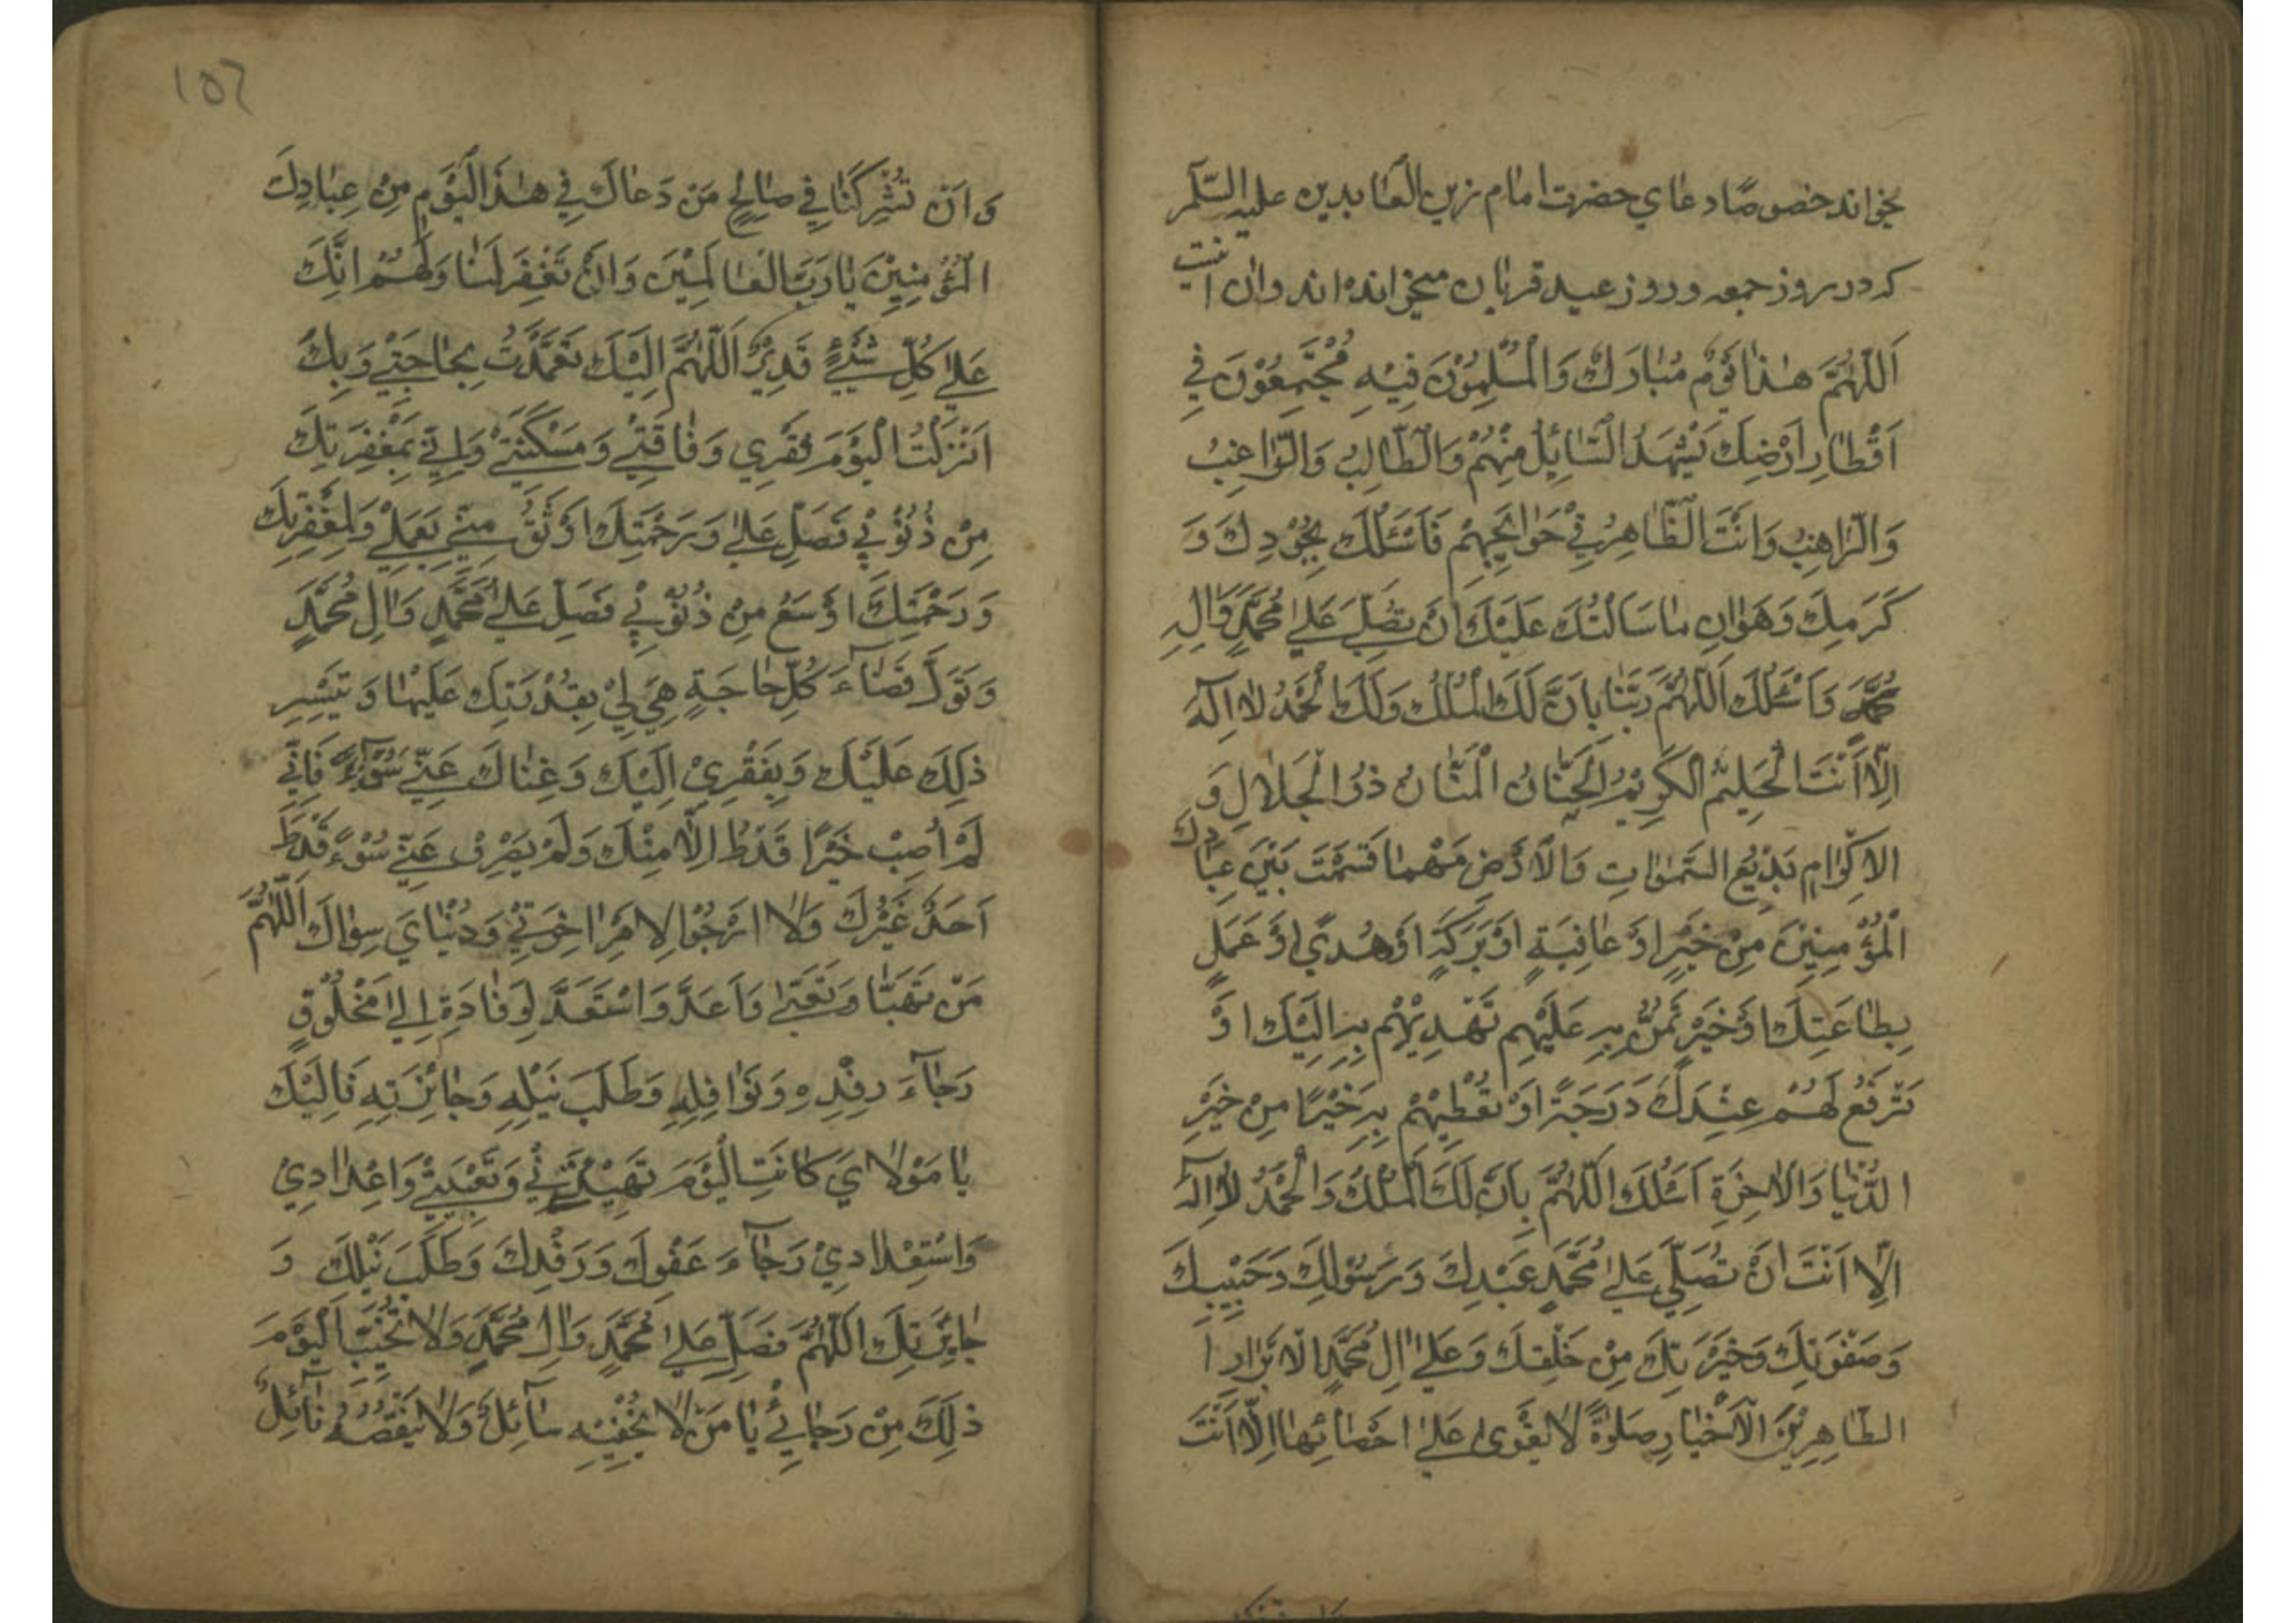 بخواند خصوصًا دعاي حضرت امام زين العابدين عليه السّلم
كه در روز جمعه و روز عيد قربان ميخوانده اند و ان اينست
اَللّٰهُمَّ هٰذا يَوْمٌ مُبٰارَكٌ وَالْمُسْلِمُوْنَ فِيْهِ مُجْتَمِعُوْنَ فِي
اَقْطٰارِ اَرْضِكَ يَشْهَدُ السّٰائِلُ مِنْهُمْ وَالطّٰالِبُ وَالرّٰاغِبُ
وَالرّٰاهِبُ وَاَنْتَ النّٰاظِرُ فِيْ حَوٰائِجِهِمْ فَاَسْئَلُكَ بِجُوْدِكَ وَ
كَرَمِكَ وَهَوٰانِ مٰا سَاَلْتُكَ عَلَيْكَ اَنْ تُصَلِّيَ عَلىٰ مُحَمَّدٍ وَاٰلِهِ
مُحَمَّدٍ وَاَسْئَلُكَ اَللّٰهُمَّ رَبَّنٰا بِاَنَّ لَكَ الْمُلْكَ وَلَكَ الْحَمْدُ لٰا اِلٰهَ
اِلّٰا اَنْتَ الْحَلِيْمُ الْكَرِيْمُ الْحَنّٰانُ الْمَنّٰانُ ذُو الْجَلٰالِ وَ
الاِكْرٰامِ بَدِيْعُ السَّمٰوٰاتِ وَالْاَرْضِ مَهْمٰا قَسَمْتَ بَيْنَ عِبٰادِكَ
الْمُؤْمِنِيْنَ مِنْ خَيْرٍ اَوْ عٰافِيَةٍ اَوْ بَرَكَةٍ اَوْ هُدًي اَوْ عَمَلٍ
بِطٰاعَتِكَ اَوْ خَيْرٍ تَمُنُّ بِهِ عَلَيْهِمْ تَهْدِيْهِمْ بِهِ اِلَيْكَ اَوْ
تَرْفَعُ لَهُمْ عِنْدَكَ دَرَجَةً اَوْ تُعْطِيْهِمْ بِهِ خَيْرًا مِنْ خَيْرِ
الدُّنْيٰا وَالْاٰخِرَةِ اَسْئَلُكَ اللّٰهُمَّ بِاَنَّ لَكَ الْمُلْكَ وَالْحَمْدَ لٰا اِلٰهَ
اِلّٰا اَنْتَ اَنْ تُصَلِّيَ عَلىٰ مُحَمَّدٍ عَبْدِكَ وَرَسُوْلِكَ وَحَبِيْبِكَ
وَصَفْوَتِكَ وَخِيَرَتِكَ مِنْ خَلْقِكَ وَعَلىٰ اٰلِ مُحَمَّدٍ الْاَبْرٰارِ ا
الطّٰاهِرِيْنَ الْاَخْيٰارِ صَلٰوةً لٰا يَقْوىٰ عَلىٰ اِحْصٰائِهٰا اِلّٰا اَنْتَ
١٥٦
وَاَنْ تُشْرِكَنٰا فِي صٰالِحِ مَنْ دَعٰاكَ فِي هٰذَا الْيَوْمِ مِنْ عِبٰادِكَ
الْمُؤْمِنِيْنَ يٰا رَبَّ الْعٰالَمِيْنَ وَاَنْ تَغْفِرَ لَنٰا وَلَهُمْ اِنَّكَ
عَلىٰ كُلِّ شَيْءٍ قَدِيْرٌ اَللّٰهُمَّ اِلَيْكَ تَعَمَّدْتُ بِحٰاجَتِيْ وَبِكَ
اَنْزَلْتُ الْيَوْمَ فَقْرِي وَفٰاقَتِيْ وَمَسْكَنَتِيْ وَاِنِّي بِمَغْفِرَتِكَ
مِنْ ذُنُوْبِيْ فَصَلِّ عَلىٰ وَرَحْمَتِكَ اَوْثَقُ مِنِّي بِعَمَلِيْ وَلَمَغْفِرَتُكَ
وَرَحْمَتُكَ اَوْسَعُ مِنْ ذُنُوْبِيْ فَصَلِّ عَلىٰ مُحَمَّدٍ وَاٰلِ مُحَمَّدٍ
وَتَوَلَّ قَضٰاءَ كُلِّ حٰاجَةٍ هِيَ لِيْ بِقُدْرَتِكَ عَلَيْهٰا وَتَيْسِيْرِ
ذٰلِكَ عَلَيْكَ وَبِفَقْرِيْ اِلَيْكَ وَغِنٰاكَ عَنِّي سُوْءً فَاِنِّي
لَمْ اُصِبْ خَيْرًا قَطُّ اِلّٰا مِنْكَ وَلَمْ يَصْرِفْ عَنِّي سُوْءً قَطُّ
اَحَدٌ غَيْرُكَ وَلٰا اَرْجُوْ لِاَمْرِ اٰخِرَتِيْ وَدُنْيٰايَ سِوٰاكَ اَللّٰهُمَّ
مَنْ تَهَيَّا وَتَعَبّٰى وَاَعَدَّ وَاسْتَعَدَّ لِوِفٰادَةٍ اِلىٰ مَخْلُوْقٍ
رَجٰاءَ رِفْدِهِ وَنَوٰافِلِهِ وَطَلَبَ نَيْلِهِ وَجٰائِزَتِهِ فَاِلَيْكَ
يٰا مَوْلٰايَ كٰانَتِ الْيَوْمَ تَهْيِئَتِيْ وَتَعْبِيَتِيْ وَاِعْدٰادِيْ
وَاسْتِعْدٰادِيْ رَجٰاءَ عَفْوِكَ وَرِفْدِكَ وَطَلَبَ نَيْلِكَ وَ
جٰائِزَتِكَ اَللّٰهُمَّ فَصَلِّ عَلىٰ مُحَمَّدٍ وَاٰلِ مُحَمَّدٍ وَلٰا تُخَيِّبِ الْيَوْمَ
ذٰلِكَ مِنْ رَجٰائِيْ يٰا مَنْ لٰا يُحْفِيْهِ سٰائِلٌ وَلٰا يَنْقُصُهُ نٰائِلٌ